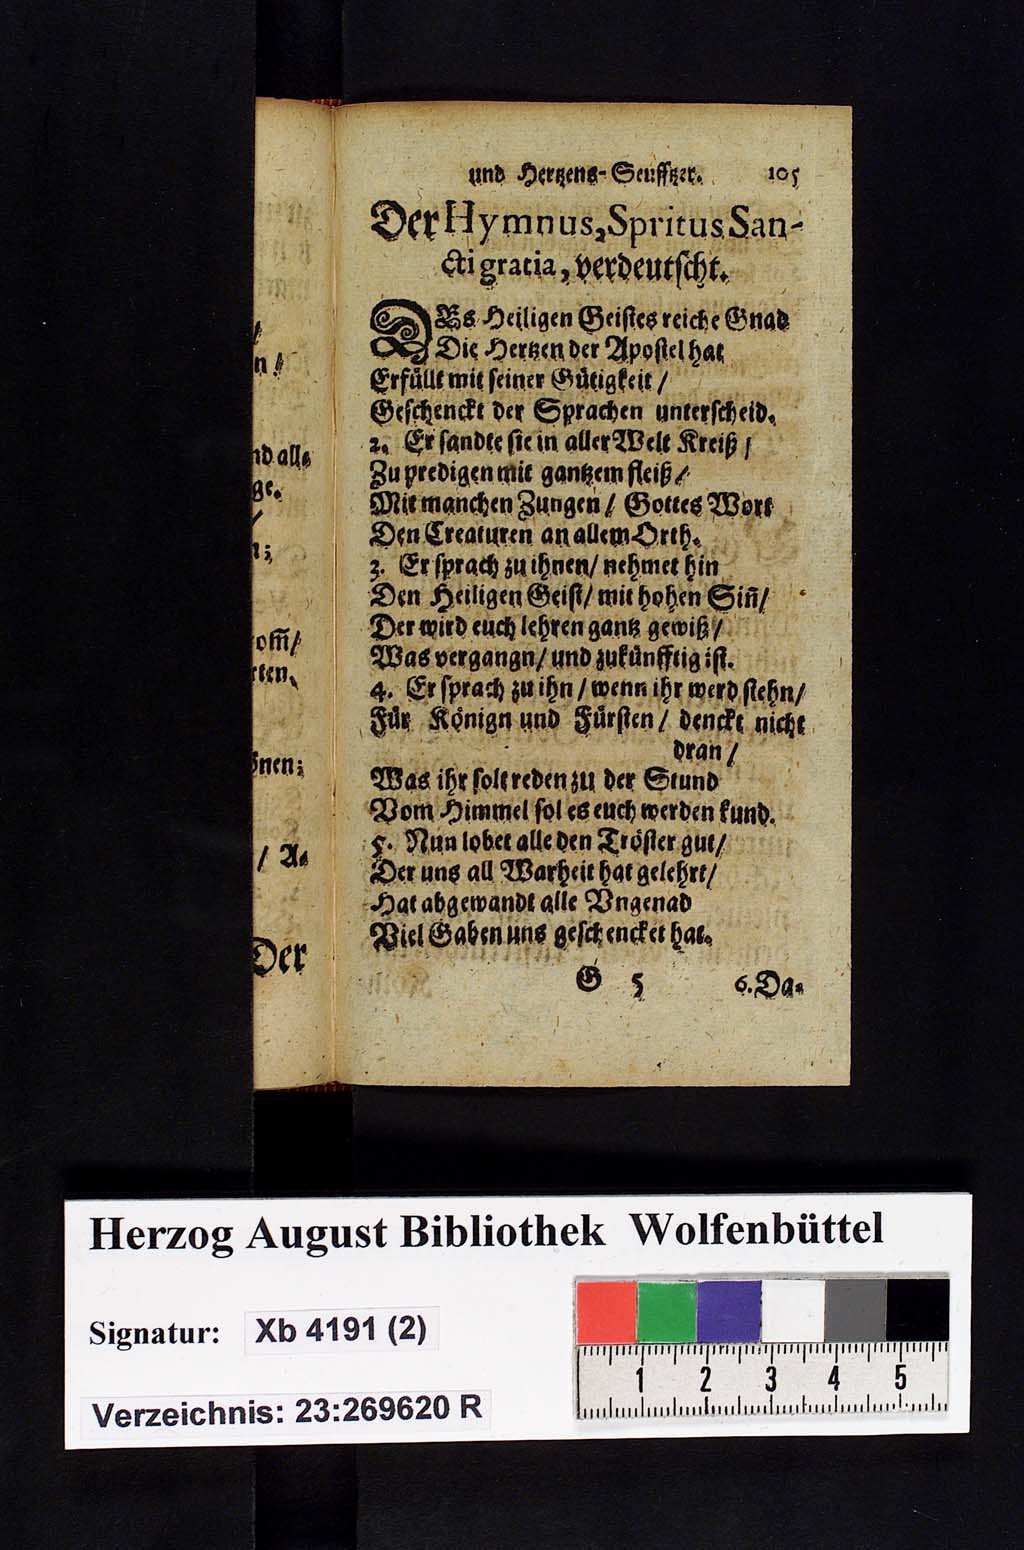 und Hertzens-Seufftzer. 105
Der Hymnus, Spritus San-
cti gratia, verdeutscht.
DEs Heiligen Geistes reiche Gnad
Die Hertzen der Apostel hat
Erfüllt mit seiner Gütigkeit /
Geschenckt der Sprachen unterscheid.
2. Er sandte sie in aller Welt Kreiß /
Zu predigen mit gantzem fleiß /
Mit manchen Zungen / Gottes Wort
Den Creaturen an allem Orth.
3. Er sprach zu ihnen / nehmet hin
Den Heiligen Geist / mit hohen Siñ /
Der wird euch lehren gantz gewiß /
Was vergangn / und zukünfftig ist.
4. Er sprach zu ihn / wenn ihr werd stehn /
Für Könign und Fürsten / denckt nicht
dran /
Was ihr solt reden zu der Stund
Vom Himmel sol es euch werden kund.
5. Nun lobet alle den Tröster gut /
Der uns all Warheit hat gelehrt /
Hat abgewandt alle Vngenad
Viel Gaben uns geschencket hat.
G 5 6. Da-
n /
nd alle
ge.
/
n;
om̃ /
rten.
önen;
/ A-
Der
Herzog August Bibliothek Wolfenbüttel
Signatur: Xb 4191 (2)
Verzeichnis: 23:269620 R
1 2 3 4 5